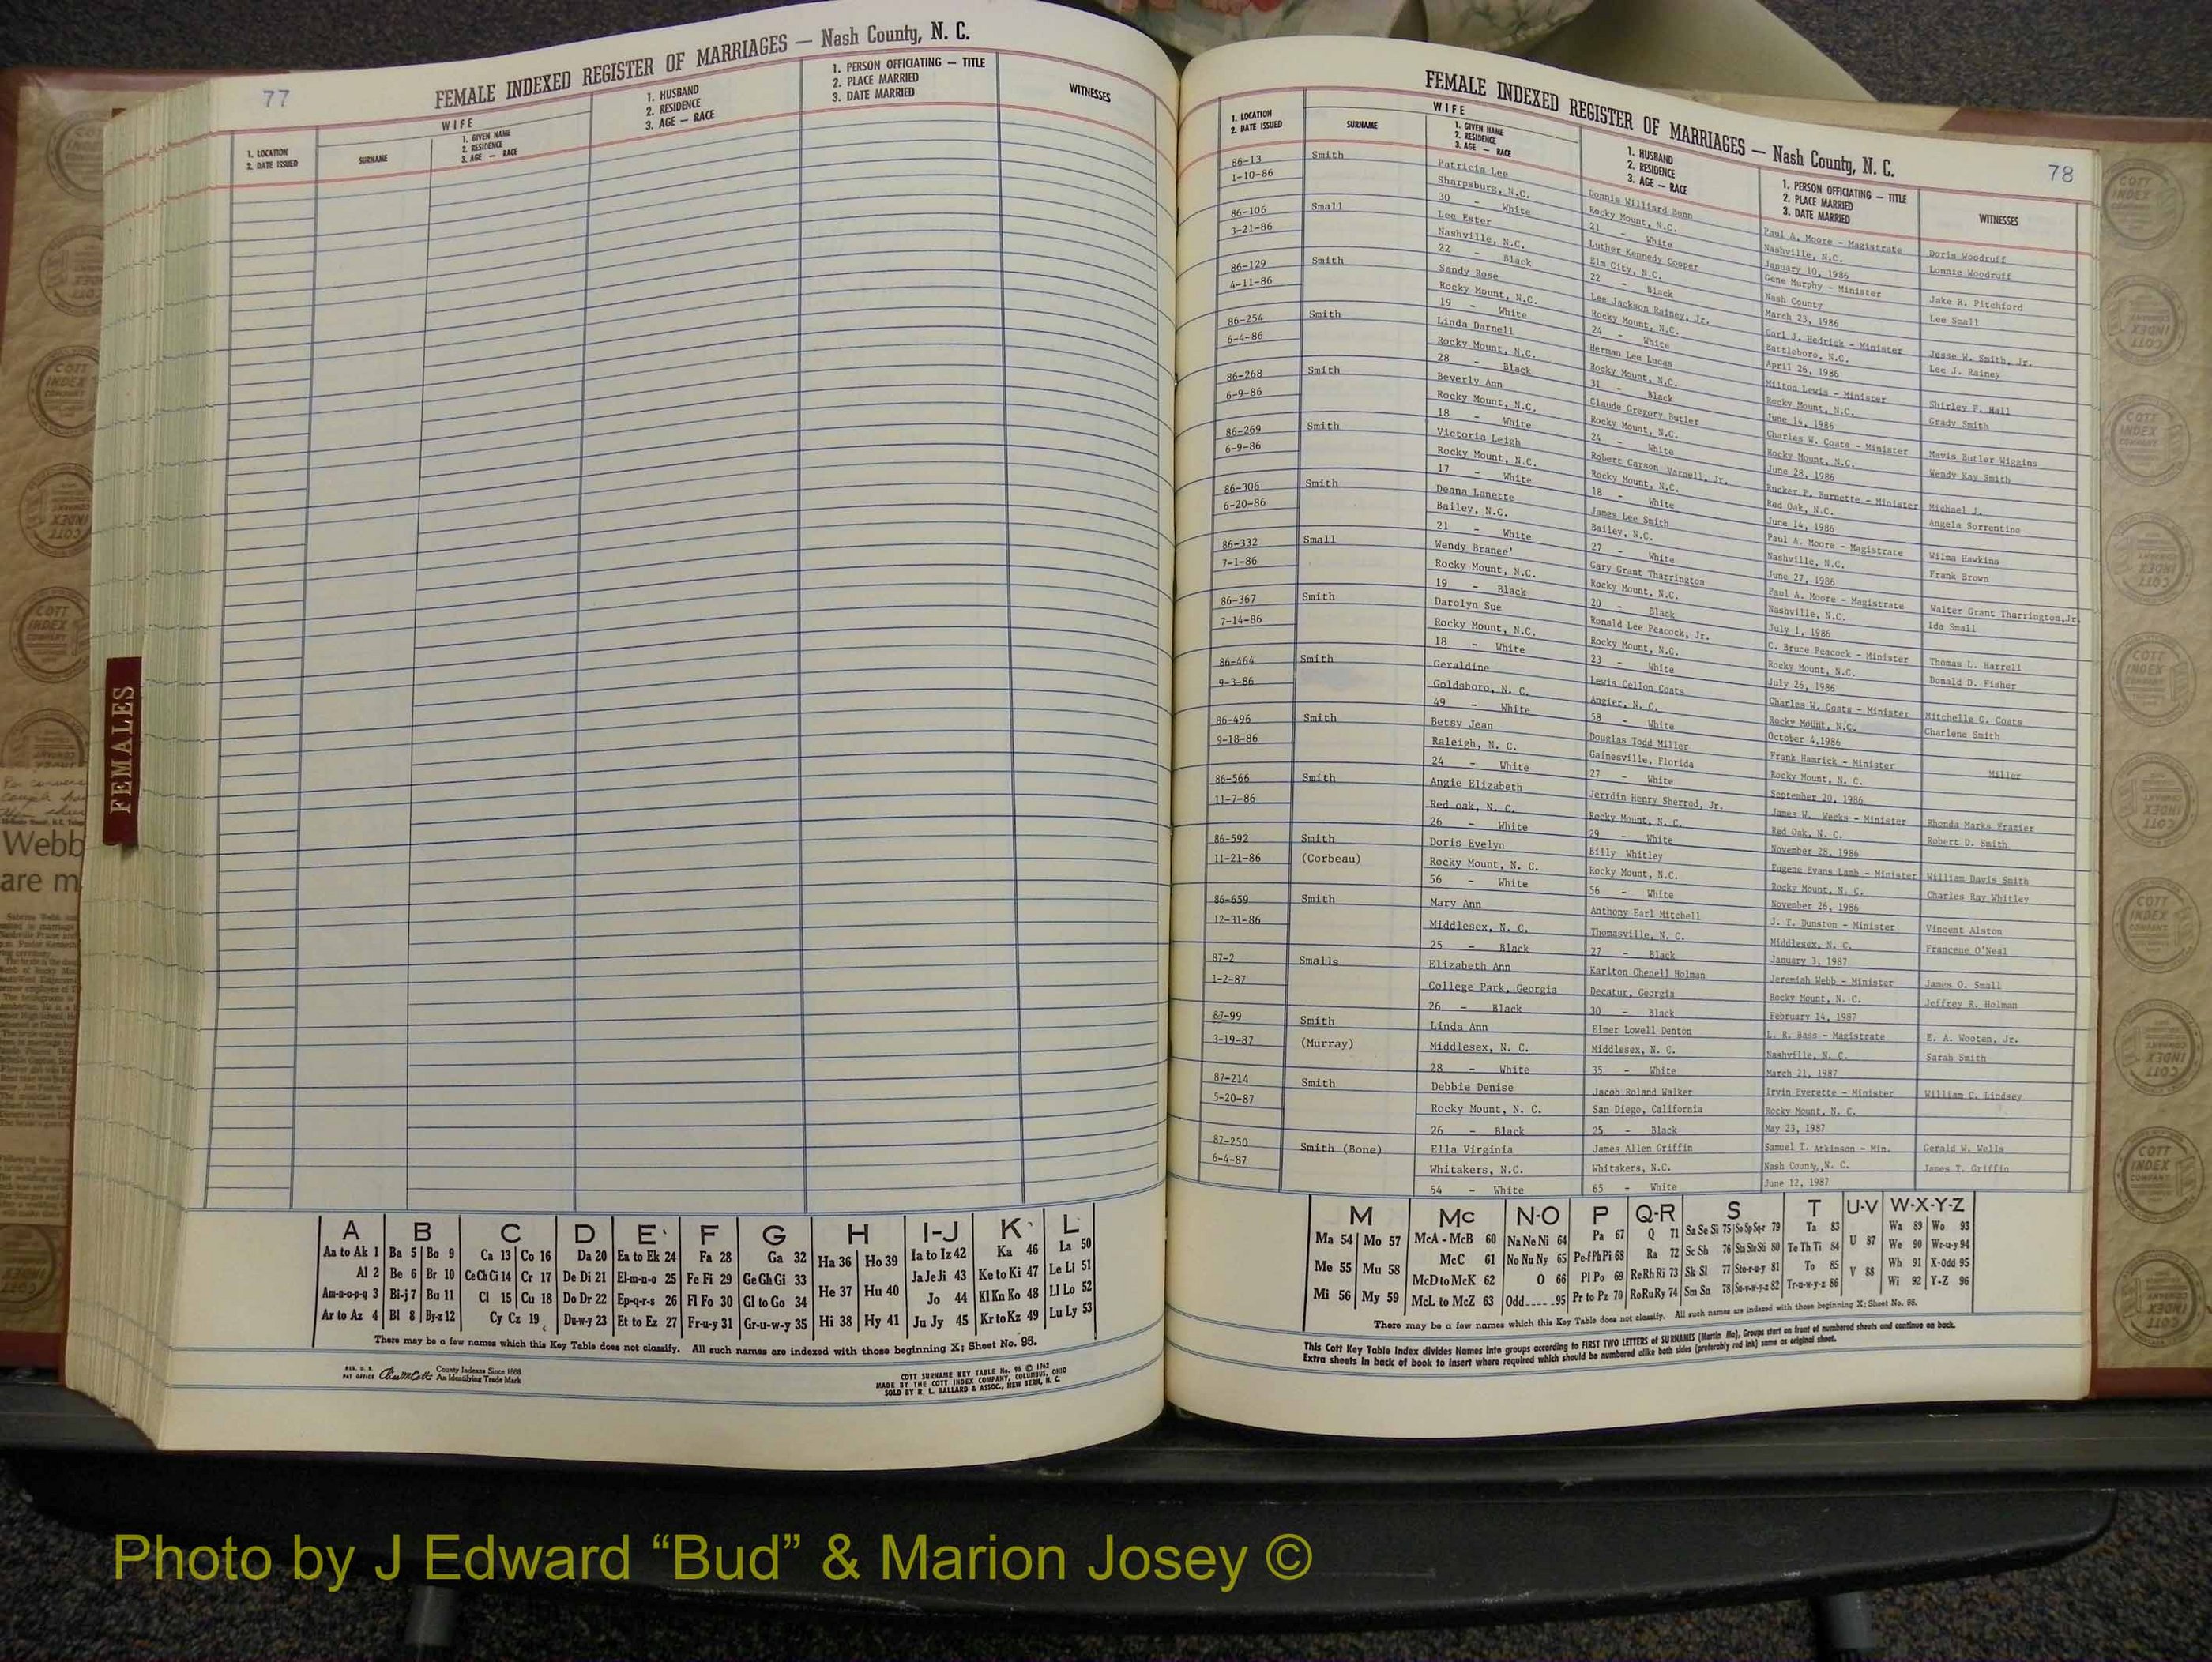 77
FEMALE INDEXED REGISTER OF MARRIAGES — Nash County, N. C.
1. LOCATION
2. DATE ISSUED
WIFE
SURNAME
1. GIVEN NAME
2. RESIDENCE
3. AGE — RACE
1. HUSBAND
2. RESIDENCE
3. AGE — RACE
1. PERSON OFFICIATING — TITLE
2. PLACE MARRIED
3. DATE MARRIED
WITNESSES
FEMALES
Webb
are m
A B C D E F G H I-J K L
Aa to Ak 1 Ba 5 Bo 9 Ca 13 Co 16 Da 20 Ea to Ek 24 Fa 28 Ga 32 Ha 36 Ho 39 Ia to Iz 42 Ka 46 La 50
Al 2 Be 6 Br 10 Ce Ch Ci 14 Cr 17 De Di 21 El-m-n-o 25 Fe Fi 29 Ge Gh Gi 33 He 37 Hu 40 Ja Je Ji 43 Ke to Ki 47 Le Li 51
Am-n-o-p-q 3 Bi-j 7 Bu 11 Cl 15 Cu 18 Do Dr 22 Ep-q-r-s 26 Fl Fo 30 Gl to Go 34 Hi 38 Hy 41 Jo 44 Kl Kn Ko 48 Ll Lo 52
Ar to Az 4 Bl 8 By-z 12 Cy Cz 19 Du-w-y 23 Et to Ez 27 Fr-u-y 31 Gr-u-w-y 35 Ju Jy 45 Kr to Kz 49 Lu Ly 53
There may be a few names which this Key Table does not classify. All such names are indexed with those beginning X; Sheet No. 95.
County Indexes Since 1888
An Identifying Trade Mark
COTT SURNAME KEY TABLE No. 96 © 1962
MADE BY THE COTT INDEX COMPANY, COLUMBUS, OHIO
SOLD BY R. L. BALLARD & ASSOC., NEW BERN, N. C.
FEMALE INDEXED REGISTER OF MARRIAGES — Nash County, N. C.
78
1. LOCATION
2. DATE ISSUED
WIFE
SURNAME
1. GIVEN NAME
2. RESIDENCE
3. AGE — RACE
1. HUSBAND
2. RESIDENCE
3. AGE — RACE
1. PERSON OFFICIATING — TITLE
2. PLACE MARRIED
3. DATE MARRIED
WITNESSES
86-13 Smith Patricia Lee Donnie Williard Bunn Paul A. Moore - Magistrate Doris Woodruff
1-10-86 Sharpsburg, N.C. Rocky Mount, N.C. Nashville, N.C. Lonnie Woodruff
30 - White 21 - White January 10, 1986
86-106 Small Lee Ester Luther Kennedy Cooper Gene Murphy - Minister Jake R. Pitchford
3-21-86 Nashville, N.C. Elm City, N.C. Nash County Lee Small
22 - Black 22 - Black March 23, 1986
86-129 Smith Sandy Rose Lee Jackson Rainey, Jr. Carl J. Hedrick - Minister Jesse W. Smith, Jr.
4-11-86 Rocky Mount, N.C. Rocky Mount, N.C. Battleboro, N.C. Lee J. Rainey
19 - White 24 - White April 26, 1986
86-254 Smith Linda Darnell Herman Lee Lucas Milton Lewis - Minister Shirley F. Hall
6-4-86 Rocky Mount, N.C. Rocky Mount, N.C. Rocky Mount, N.C. Grady Smith
28 - Black 31 - Black June 14, 1986
86-268 Smith Beverly Ann Claude Gregory Butler Charles W. Coats - Minister Mavis Butler Wiggins
6-9-86 Rocky Mount, N.C. Rocky Mount, N.C. Rocky Mount, N.C. Wendy Kay Smith
18 - White 24 - White June 28, 1986
86-269 Smith Victoria Leigh Robert Carson Varnell, Jr. Rucker P. Burnette - Minister Michael J.
6-9-86 Rocky Mount, N.C. Rocky Mount, N.C. Red Oak, N.C. Angela Sorrentino
17 - White 18 - White June 14, 1986
86-306 Smith Deana Lanette James Lee Smith Paul A. Moore - Magistrate Wilma Hawkins
6-20-86 Bailey, N.C. Bailey, N.C. Nashville, N.C. Frank Brown
21 - White 27 - White June 27, 1986
86-332 Small Wendy Branee' Gary Grant Tharrington Paul A. Moore - Magistrate Walter Grant Tharrington,Jr
7-1-86 Rocky Mount, N.C. Rocky Mount, N.C. Nashville, N.C. Ida Small
19 - Black 20 - Black July 1, 1986
86-367 Smith Darolyn Sue Ronald Lee Peacock, Jr. C. Bruce Peacock - Minister Thomas L. Harrell
7-14-86 Rocky Mount, N.C. Rocky Mount, N.C. Rocky Mount, N.C. Donald D. Fisher
18 - White 23 - White July 26, 1986
86-464 Smith Geraldine Lewis Cellon Coats Charles W. Coats - Minister Mitchelle C. Coats
9-3-86 Goldsboro, N. C. Angier, N. C. Rocky Mount, N.C. Charlene Smith
49 - White 58 - White October 4,1986
86-496 Smith Betsy Jean Douglas Todd Miller Frank Hamrick - Minister Miller
9-18-86 Raleigh, N. C. Gainesville, Florida Rocky Mount, N. C.
24 - White 27 - White September 20, 1986
86-566 Smith Angie Elizabeth Jerrdin Henry Sherrod, Jr. James W. Weeks - Minister Rhonda Marks Frazier
11-7-86 Red oak, N. C. Rocky Mount, N. C. Red Oak, N. C. Robert D. Smith
26 - White 29 - White November 28, 1986
86-592 Smith Doris Evelyn Billy Whitley Eugene Evans Lamb - Minister William Davis Smith
11-21-86 (Corbeau) Rocky Mount, N. C. Rocky Mount, N.C. Rocky Mount, N. C. Charles Ray Whitley
56 - White 56 - White November 26, 1986
86-659 Smith Mary Ann Anthony Earl Mitchell J. T. Dunston - Minister Vincent Alston
12-31-86 Middlesex, N. C. Thomasville, N. C. Middlesex, N. C. Francene O'Neal
25 - Black 27 - Black January 3, 1987
87-2 Smalls Elizabeth Ann Karlton Chenell Holman Jeremiah Webb - Minister James O. Small
1-2-87 College Park, Georgia Decatur, Georgia Rocky Mount, N. C. Jeffrey R. Holman
26 - Black 30 - Black February 14, 1987
87-99 Smith Linda Ann Elmer Lowell Denton L. R. Bass - Magistrate E. A. Wooten, Jr.
3-19-87 (Murray) Middlesex, N. C. Middlesex, N. C. Nashville, N. C. Sarah Smith
28 - White 35 - White March 21, 1987
87-214 Smith Debbie Denise Jacob Roland Walker Irvin Everette - Minister William C. Lindsey
5-20-87 Rocky Mount, N. C. San Diego, California Rocky Mount, N. C.
26 - Black 25 - Black May 23, 1987
87-250 Smith (Bone) Ella Virginia James Allen Griffin Samuel T. Atkinson - Min. Gerald W. Wells
6-4-87 Whitakers, N.C. Whitakers, N.C. Nash County, N. C. James T. Griffin
54 - White 65 - White June 12, 1987
M Mc N-O P Q-R S T U-V W-X-Y-Z
Ma 54 Mo 57 McA - McB 60 Na Ne Ni 64 Pa 67 Q 71 Sa Se Si 75 So Sp Sq-r 79 Ta 83 U 87 Wa 89 Wo 93
Me 55 Mu 58 McC 61 No Nu Ny 65 Pe-f Ph Pi 68 Ra 72 Sc Sh 76 80 Te Th Ti 84 V 88 We 90 Wr-u-y 94
Mi 56 My 59 McD to McK 62 O 66 Pl Po 69 Re Rh Ri 73 Sk Sl 77 Sto-r-u-y 81 To 85 Wh 91 X-Odd 95
McL to McZ 63 Odd 95 Pr to Pz 70 Ro Ru Ry 74 Sm Sn 78 82 Tr-u-w-y-z 86 Wi 92 Y-Z 96
There may be a few names which this Key Table does not classify. All such names are indexed with those beginning X; Sheet No. 95.
This Cott Key Table Index divides Names into groups according to FIRST TWO LETTERS of SURNAMES (Martin Ma), Groups start on front of numbered sheets and continue on back.
Extra sheets in back of book to insert where required which should be numbered alike both sides (preferably red ink) same as original sheet.
Photo by J Edward “Bud” & Marion Josey ©